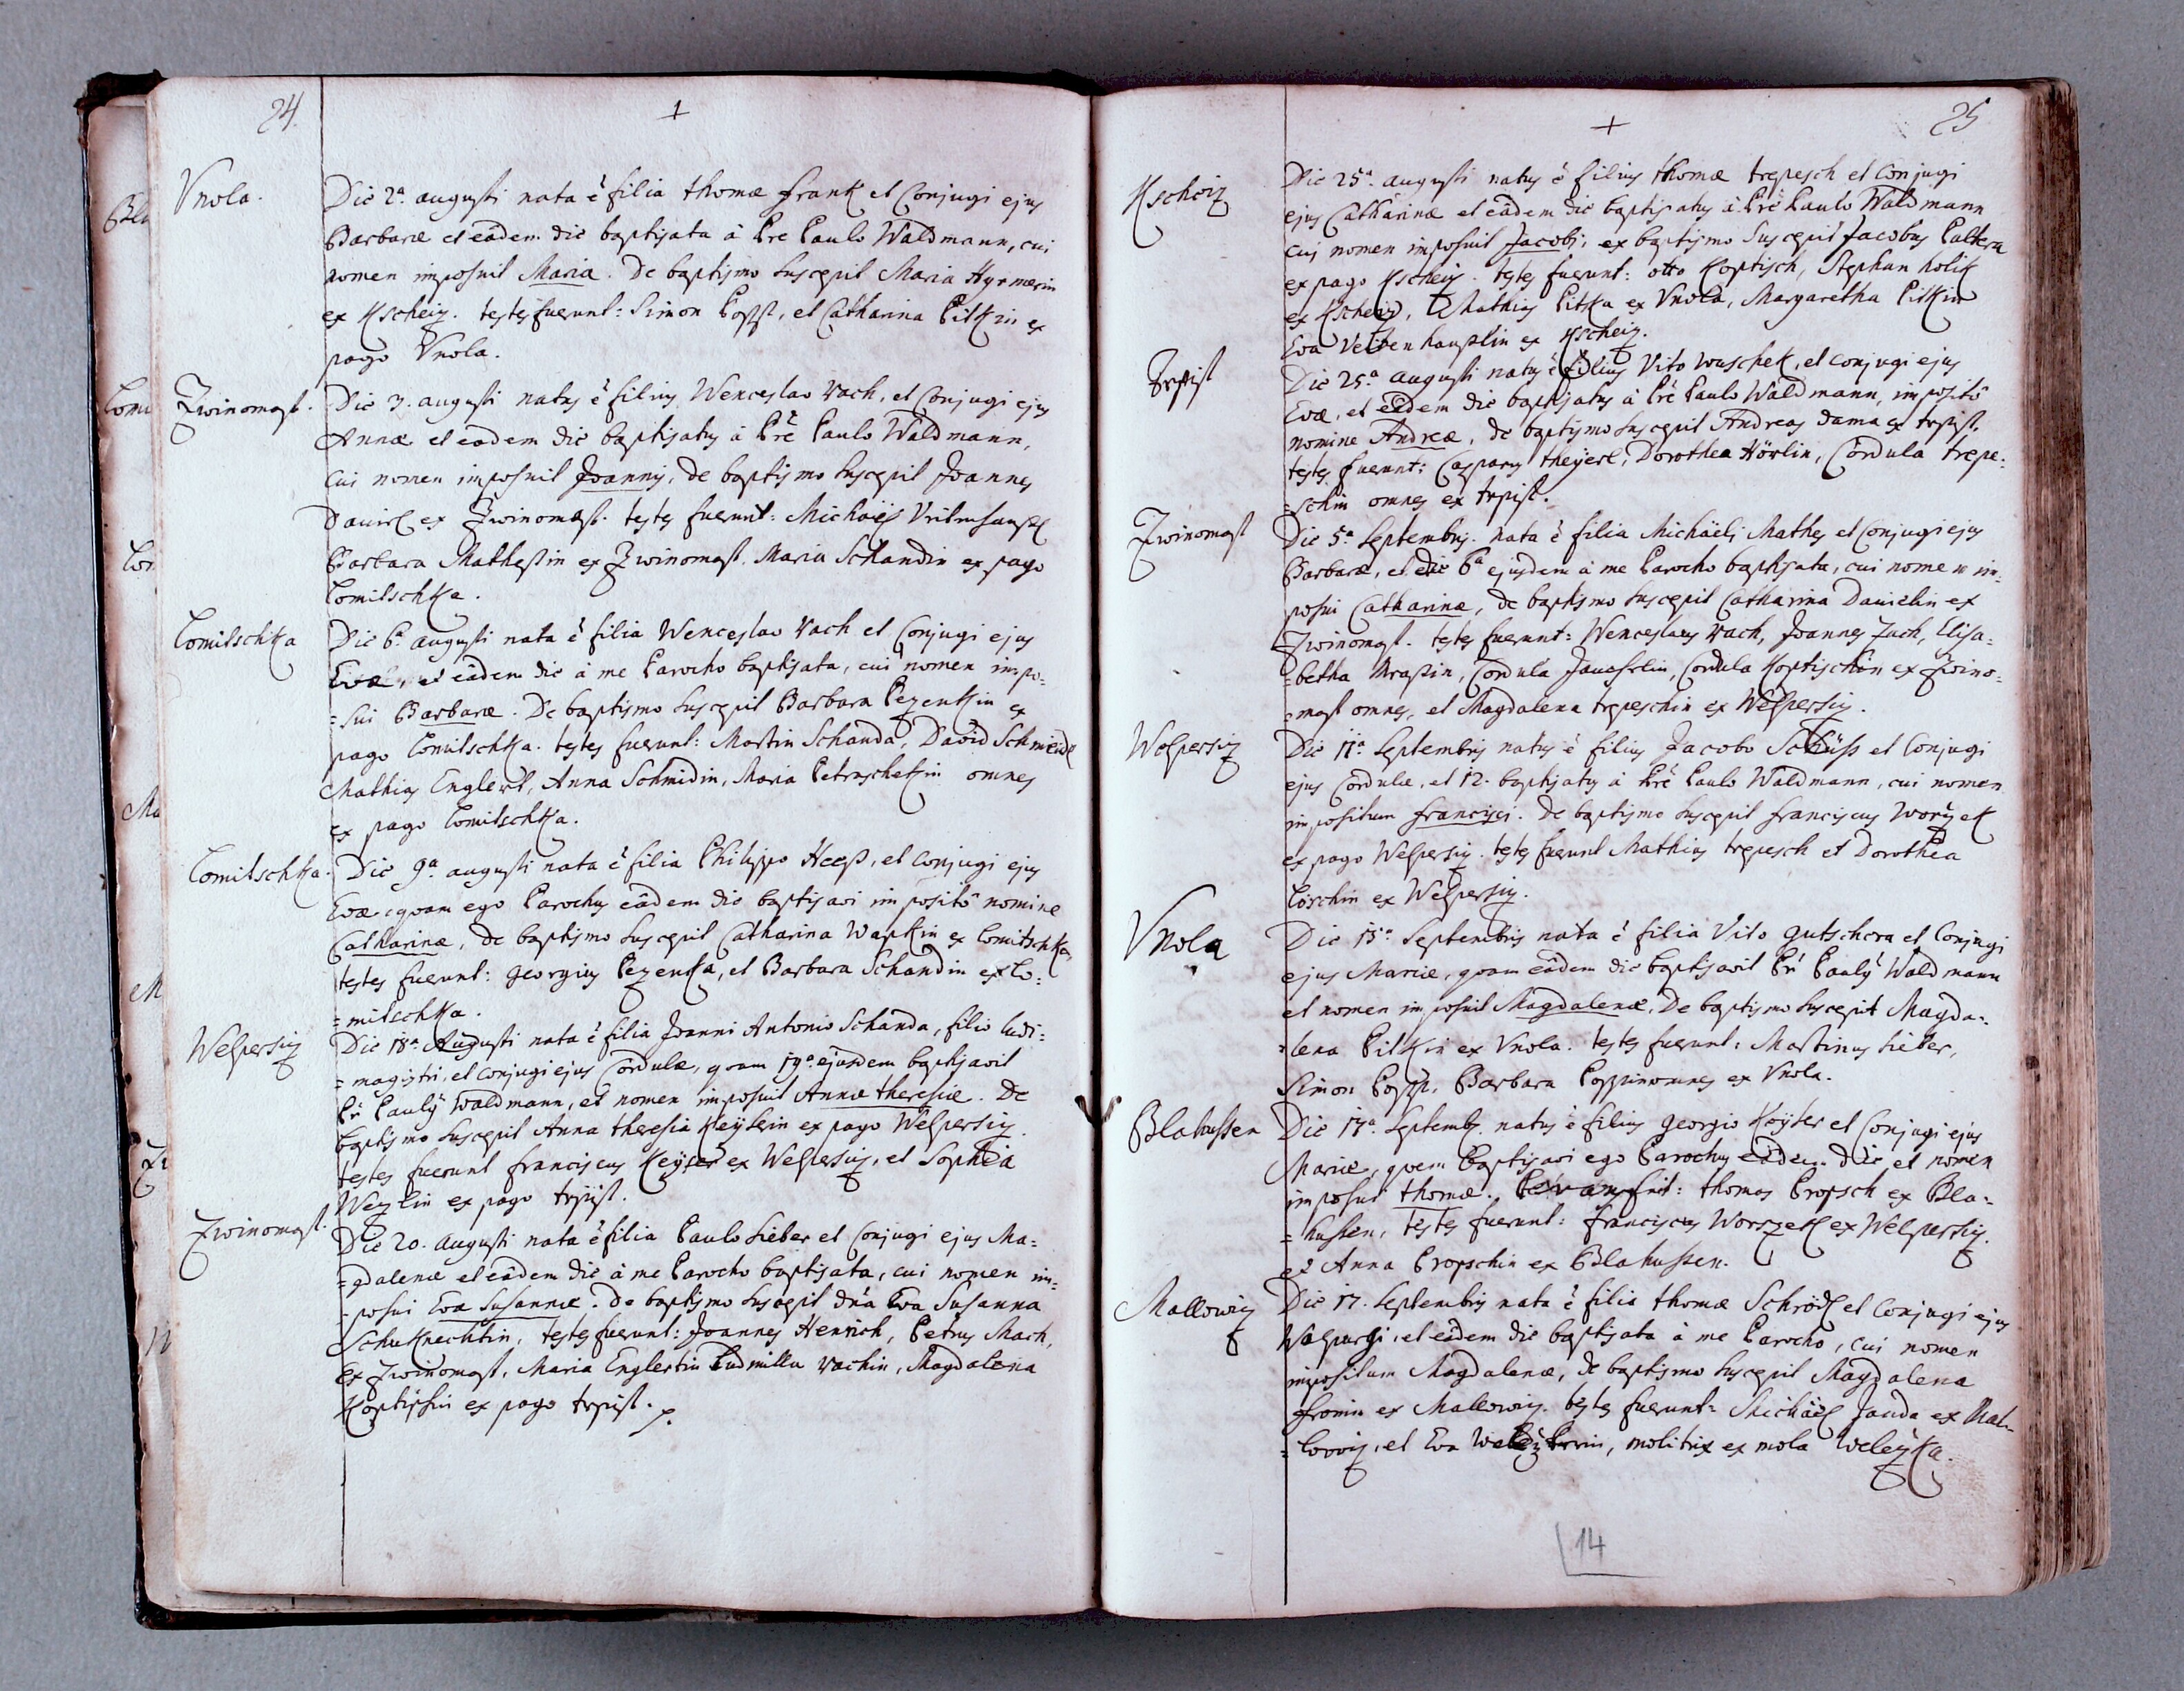 24.
+
Vnola.
Die 2ª augusti nata ê filia thomæ frank et Conjugi ejus
Barbaræ et eâdem die baptisata à Pre Paulo Waldmann, cui
nomen imposuit Maria. De baptismo suscepit Maria Hyrmerin
ex Kscheiz. testes fuerunt: Simon Popp, et Catharina PitKin ex
pago Vnola.
Zwinomast.
Die 3. augusti natus ê filius Wenceslao Vach, et Conjugi ejus
Annæ et eodem die baptisatus à Prê Paulo Waldmann,
cui nomen imposuit Joannis, de baptismo suscepit Joannes
Daniel ex Zwinomast. testes fuerunt: Michaël
Barbara Mathessin ex Zwinomast. Maria Schandin ex pago
Lomitschka.
Lomitschka
Die 6ª augusti nata ê filia Wenceslao Vach et Conjugi ejus
Evæ, et eâdem die à me Parocho baptisata, cui nomen impo=
=sui Barbaræ. De baptismo suscepit Barbara PezenKin ex
pago Lomitschka. testes fuerunt: Martin Schanda, David Schmidl
Mathias Englert, Anna Schmidin, Maria PetruscheKin omnes
ex pago Lomitschka.
Lomitschka.
Die 9ª augusti nata ê filia Philippo Heess, et conjugi ejus
Evæ, quam ego Parochus eâdem die baptisavi imposito nomine
Catharinæ, de baptismo suscepit Catharina WapKin ex Lomitschka
testes fuerunt: georgius PezenKa, et Barbara Schandin ex Lo=
=mitschka.
Welpersiz
Die 18ª Augusti nata ê filia Joanni Antonio Schanda, filio ludi=
=magistri, et conjugi ejus Cordulæ, quam 19ª ejusdem baptisavit
Pr̃ Pauly Waldmann, et nomen imposuit Annæ theresiæ. De
baptismo suscepit Anna theresia Keyserin ex pago Welpersiz.
testes fuerunt franciscus Keyser ex Welpersiz, et Sophia
Wezlin ex pago trpist.
Zwinomast.
Die 20. augusti nata ê filia Paulo Sieber et Conjugi ejus Ma=
=gdalenæ et eâdem die à me Parocho baptisata, cui nomen im=
=posui Eva Susannæ. de baptismo suscepit dña Eva Susanna
SchuKnechtin, testes fuerunt: Joannes Henrich, Petrus Mach,
ex Zwinomast, Maria Englertin Ludmilla Vachin, Magdalena
Koptischin ex pago trpist.
25
+
Kscheiz
Die 25ª augusti natus ê filius thomæ trepesch et conjugi
ejus Catharinæ et eâdem die baptisatus à Prê Paulo Waldmann
cui nomen imposuit Jacobi, ex baptismo suscepit Jacobus Paltera
ex pago Kscheiz. testes fuerunt: otto Koptisch, Stephan holiK
ex Kscheiz, Mathias PitKa ex Vnola, Margaretha PitKin
Eva Veitenhanslin ex Kscheiz.
Trpist
Die 25ª augusti natus ê filius Vito wascheK, et conjugi ejus
Evæ, et eâdem die baptisatus à Prê Paulo Waldmann, imposito
nomine Andreæ, de baptismo suscepit Andreas dama ex trpist.
testes fuerunt: Casparus theyerl, Dorothea Hörlin, Cordula trepe=
=schin omnes ex trpist.
Zwinomast
Die 5ª Septembris. nata ê filia Michäeli Mathes et Conjugi ejus
Barbaræ, et die 6ª ejusdem à me Parocho baptisata, cui nomen im=
posui Catharinæ, de baptismo suscepit Catharina Danielin ex
Zwinomast. testes fuerunt: Wenceslaus Vach, Joannes Zach, Elisa=
=betha Cordula Cordula Koptischin ex Zwino=
=mast omnes, et Magdalena trepeschin ex Welpersiz.
Welpersiz
Die 11ª Septembris natus ê filius Jacobo Schüss et Conjugi
ejus Cordulæ, et 12. baptisatus à Prê Paulo Waldmann, cui nomen
impositum francisci. De baptismo suscepit franciscus
ex pago Welpersiz. testes fuerunt Mathias trepesch et Dorothea
Löschin ex Welpersiz.
Vnola
Die 15ª Septembris nata ê filia Vito gutschera et Conjugi
ejus Mariæ, quam eâdem die baptisavit Pr̃ Pauly Waldmann
et nomen imposuit Magdalenæ. De baptismo suscepit Magda=
=lena PitKin ex Vnola. testes fuerunt: Martinus Sieber,
Simon Popp, Barbara Poppin omnes ex Vnola.
Blahussen
Die 17ª Septemb. natus ê filius georgio Keyser et Conjugi ejus
Mariæ, quem baptisavi ego Parochus eâdem die et nomen
imposui thomæ. Levans fuit: thomas Propsch ex Bla=
=hussen, testes fuerunt: franciscus WorszeK ex Welpersiz.
et Anna Propschin ex Blahussen.
Mallowiz
Die 17. Septembris nata ê filia thomæ Schrödl et Conjugi ejus
Walpurgi, et eâdem die baptisata à me Parocho, cui nomen
impositum Magdalenæ, de baptismo suscepit Magdalena
fronin ex Mallowiz. testes fuerunt: Michäel Janda ex Mal=
=lowiz, et Eva molitrix ex mola WeleyKa.
14